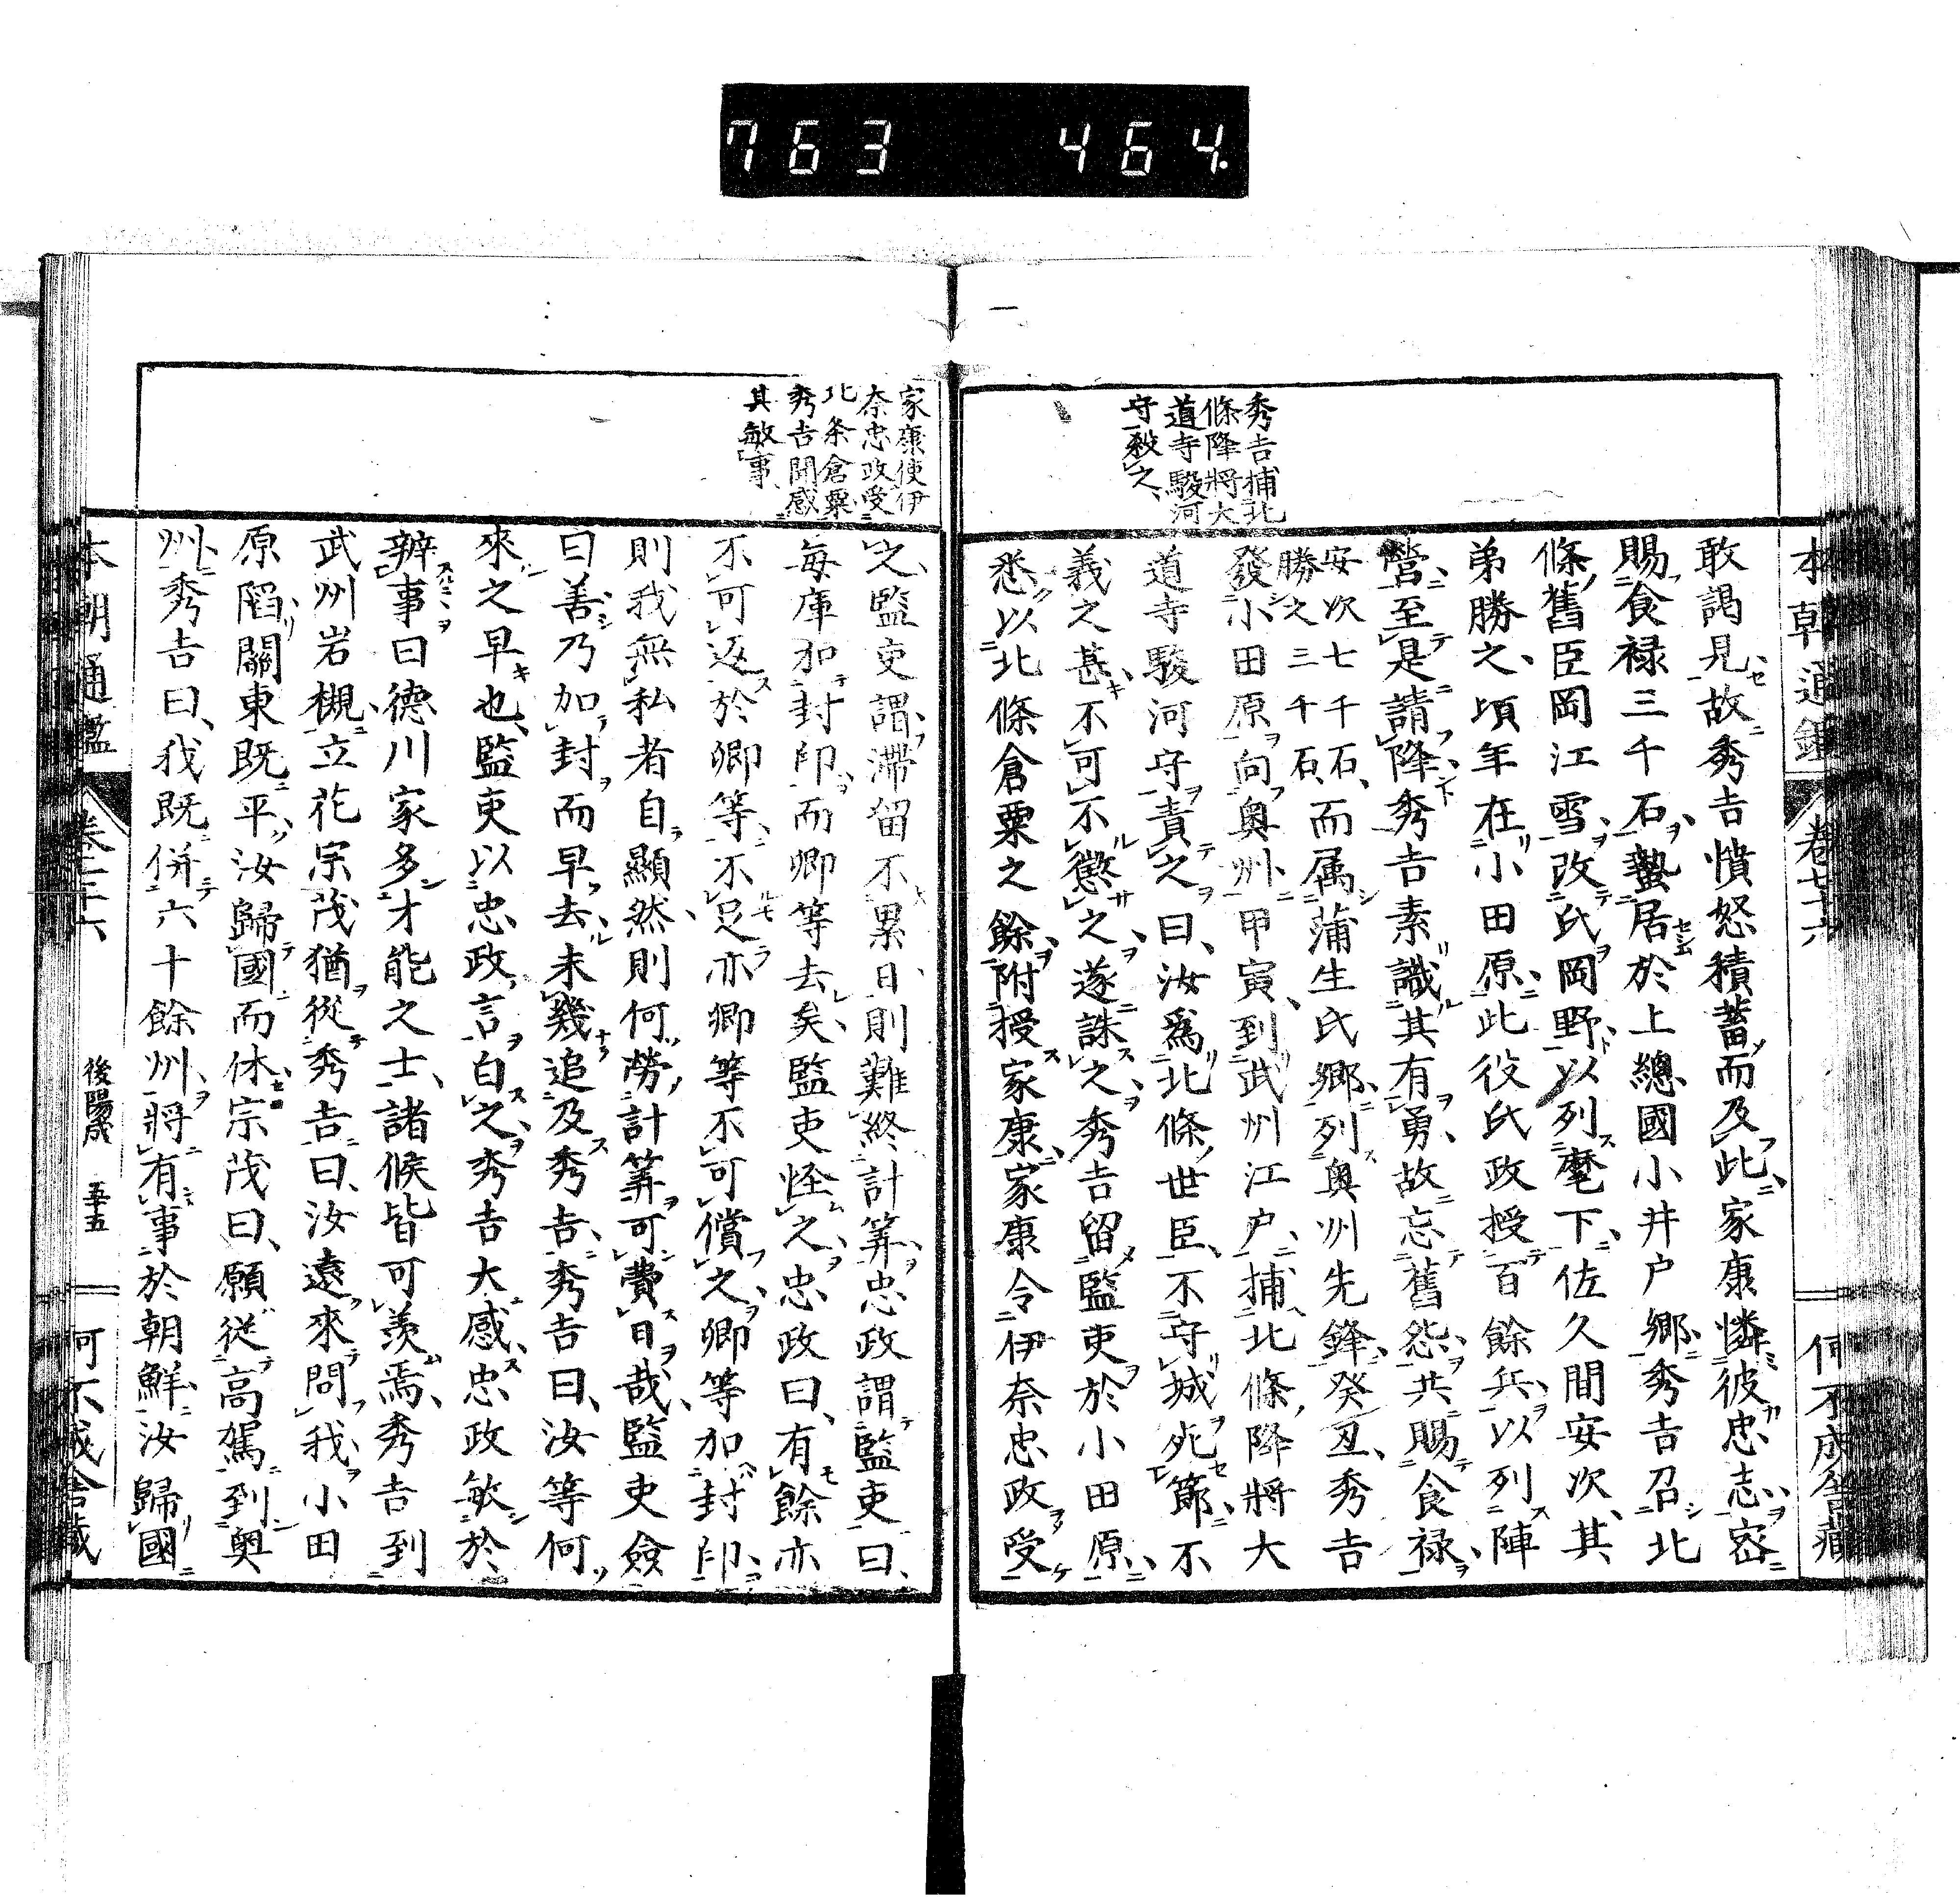 763 464.
本朝通鑑 卷七十六 何不成舎藏
秀吉捕北
條降將大
道寺駿河
守殺之
敢謁見故秀吉憤怒積蓄而及此家康憐彼忠志密
賜食禄三千石蟄居於上總國小井戸鄉秀吉召北
條舊臣岡江雪改氏岡野以列麾下佐久間安次其
弟勝之頃年在小田原此役氏政授百餘兵以列陣
營至是請降秀吉素識其有勇故忘舊怨共賜食禄
安次七千石
勝之三千石
而属蒲生氏鄉列奥州先鋒癸丑秀吉
發小田原向奥州甲寅到武州江户捕北條降將大
道寺駿河守責之曰汝爲北條世臣不守城死節不
義之甚不可不懲之遂誅之秀吉留監吏於小田原
悉以北條倉粟之餘附授家康家康令伊奈忠政受
家康使伊
奈忠政受
北条倉粟
秀吉聞感
其敏事
之監吏謂滯留不累日則難終計筭忠政謂監吏曰
每庫加封印而卿等去矣監吏怪之忠政曰有餘亦
不可返於卿等不足亦卿等不可償之卿等加封印
則我無私者自顯然則何勞計筭可費日哉監吏僉
曰善乃加封而早去未幾追及秀吉秀吉曰汝等何
來之早也監吏以忠政言白之秀吉大感忠政敏於
辨事曰德川家多才能之士諸候皆可羨焉秀吉到
武州岩槻立花宗茂猶從秀吉曰汝遠來問我小田
原陷關東既平汝歸國而休宗茂曰願從高駕到奥
州秀吉曰我既併六十餘州將有事於朝鮮汝歸國
本朝通鑑 卷七十六 後陽成 五十五 何不成舎藏